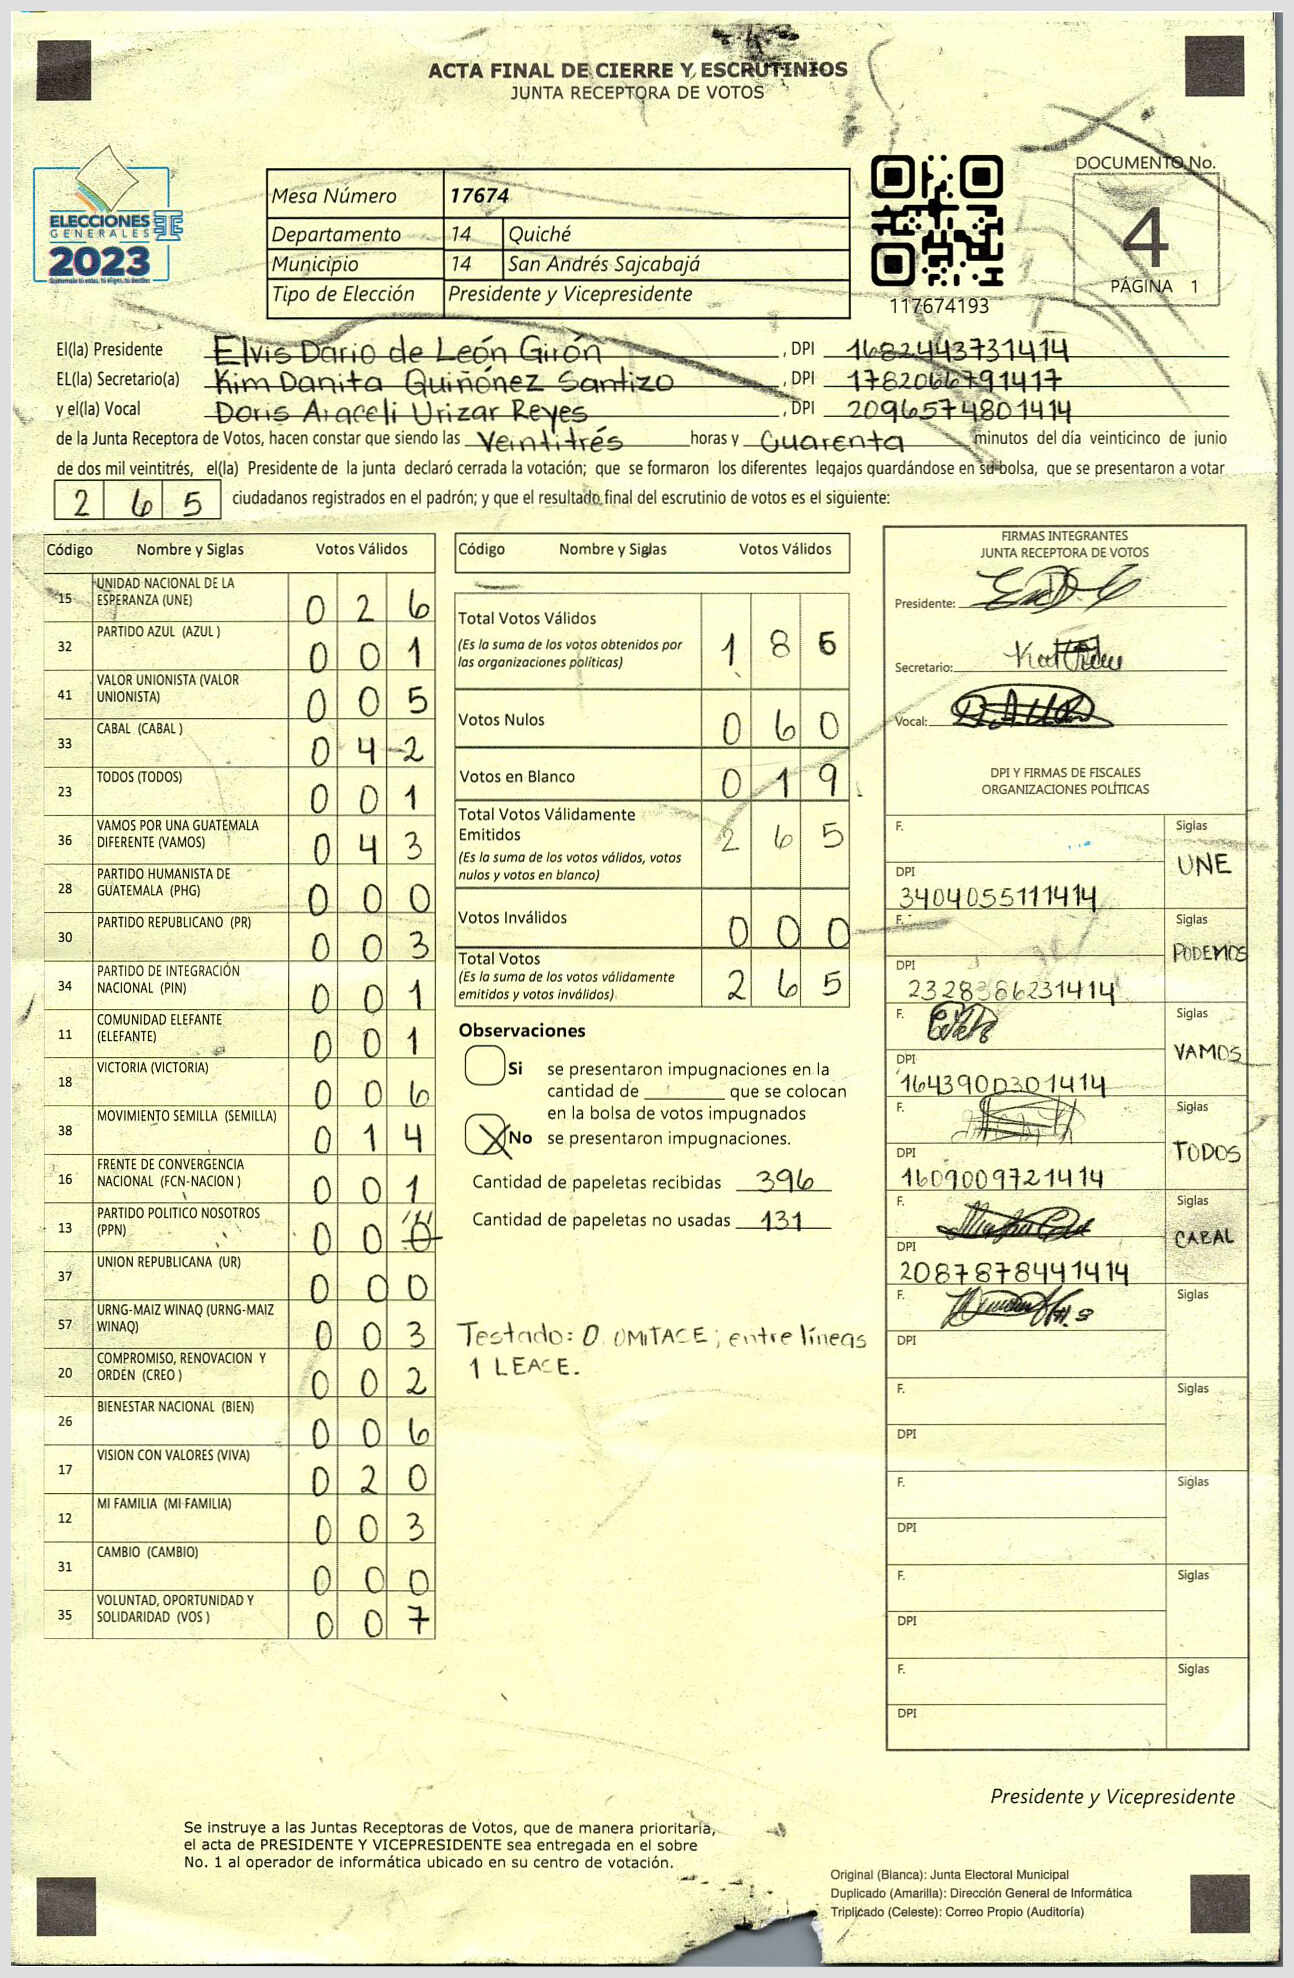 ACTA FINAL DE CIERRE Y ESCRUTINIOS
JUNTA RECEPTORA DE VOTOS
ELECCIONES
GENERALES
2023
Mesa Número 17674
Departamento 14 Quiché
Municipio 14 San Andrés Sajcabajá
Tipo de Elección Presidente y Vicepresidente
117674193
DOCUMENTO No.
4
PÁGINA 1
El(la) Presidente Elvis Dario de León Girón, DPI 1682443731414
EL(la) Secretario(a) Kim Danita Quiñónez Santizo, DPI 1782066791417
y el(la) Vocal Doris Araceli Urizar Reyes, DPI 2096574801414
de la Junta Receptora de Votos, hacen constar que siendo las Veintitrés horas y Cuarenta minutos del día veinticinco de junio
de dos mil veintitrés, el(la) Presidente de la junta declaró cerrada la votación; que se formaron los diferentes legajos guardándose en su bolsa, que se presentaron a votar
2 6 5 ciudadanos registrados en el padrón; y que el resultado final del escrutinio de votos es el siguiente:
Código Nombre y Siglas Votos Válidos
15 UNIDAD NACIONAL DE LA ESPERANZA (UNE) 0 2 6
32 PARTIDO AZUL (AZUL ) 0 0 1
41 VALOR UNIONISTA (VALOR UNIONISTA) 0 0 5
33 CABAL (CABAL ) 0 4 2
23 TODOS (TODOS) 0 0 1
36 VAMOS POR UNA GUATEMALA DIFERENTE (VAMOS) 0 4 3
28 PARTIDO HUMANISTA DE GUATEMALA (PHG) 0 0 0
30 PARTIDO REPUBLICANO (PR) 0 0 3
34 PARTIDO DE INTEGRACIÓN NACIONAL (PIN) 0 0 1
11 COMUNIDAD ELEFANTE (ELEFANTE) 0 0 1
18 VICTORIA (VICTORIA) 0 0 6
38 MOVIMIENTO SEMILLA (SEMILLA) 0 1 4
16 FRENTE DE CONVERGENCIA NACIONAL (FCN-NACION ) 0 0 1
13 PARTIDO POLITICO NOSOTROS (PPN) 0 0 0
37 UNION REPUBLICANA (UR) 0 0 0
57 URNG-MAIZ WINAQ (URNG-MAIZ WINAQ) 0 0 3
20 COMPROMISO, RENOVACION Y ORDEN (CREO ) 0 0 2
26 BIENESTAR NACIONAL (BIEN) 0 0 6
17 VISION CON VALORES (VIVA) 0 2 0
12 MI FAMILIA (MI FAMILIA) 0 0 3
31 CAMBIO (CAMBIO) 0 0 0
35 VOLUNTAD, OPORTUNIDAD Y SOLIDARIDAD (VOS ) 0 0 7
Código Nombre y Siglas Votos Válidos
Total Votos Válidos 1 8 5
(Es la suma de los votos obtenidos por
las organizaciones políticas)
Votos Nulos 0 6 0
Votos en Blanco 0 1 9
Total Votos Válidamente
Emitidos 2 6 5
(Es la suma de los votos válidos, votos
nulos y votos en blanco)
Votos Inválidos 0 0 0
Total Votos
(Es la suma de los votos válidamente
emitidos y votos inválidos) 2 6 5
Observaciones
Si se presentaron impugnaciones en la
cantidad de ________ que se colocan
en la bolsa de votos impugnados
No se presentaron impugnaciones.
Cantidad de papeletas recibidas 396
Cantidad de papeletas no usadas 131
Testado: 0 OMITACE; entre líneas
1 LEACE.
FIRMAS INTEGRANTES
JUNTA RECEPTORA DE VOTOS
Presidente:
Secretario:
Vocal:
DPI Y FIRMAS DE FISCALES
ORGANIZACIONES POLÍTICAS
F. Siglas
UNE
DPI
3404055111414
F. Siglas
PODEMOS
DPI
2328386231414
F. Siglas
VAMOS
DPI
1643900301414
F. Siglas
TODOS
DPI
1609009721414
F. Siglas
CABAL
DPI
2087878441414
F. Siglas
DPI
F. Siglas
DPI
F. Siglas
DPI
F. Siglas
DPI
F. Siglas
DPI
Presidente y Vicepresidente
Se instruye a las Juntas Receptoras de Votos, que de manera prioritaria,
el acta de PRESIDENTE Y VICEPRESIDENTE sea entregada en el sobre
No. 1 al operador de informática ubicado en su centro de votación.
Original (Blanca): Junta Electoral Municipal
Duplicado (Amarilla): Dirección General de Informática
Triplicado (Celeste): Correo Propio (Auditoría)